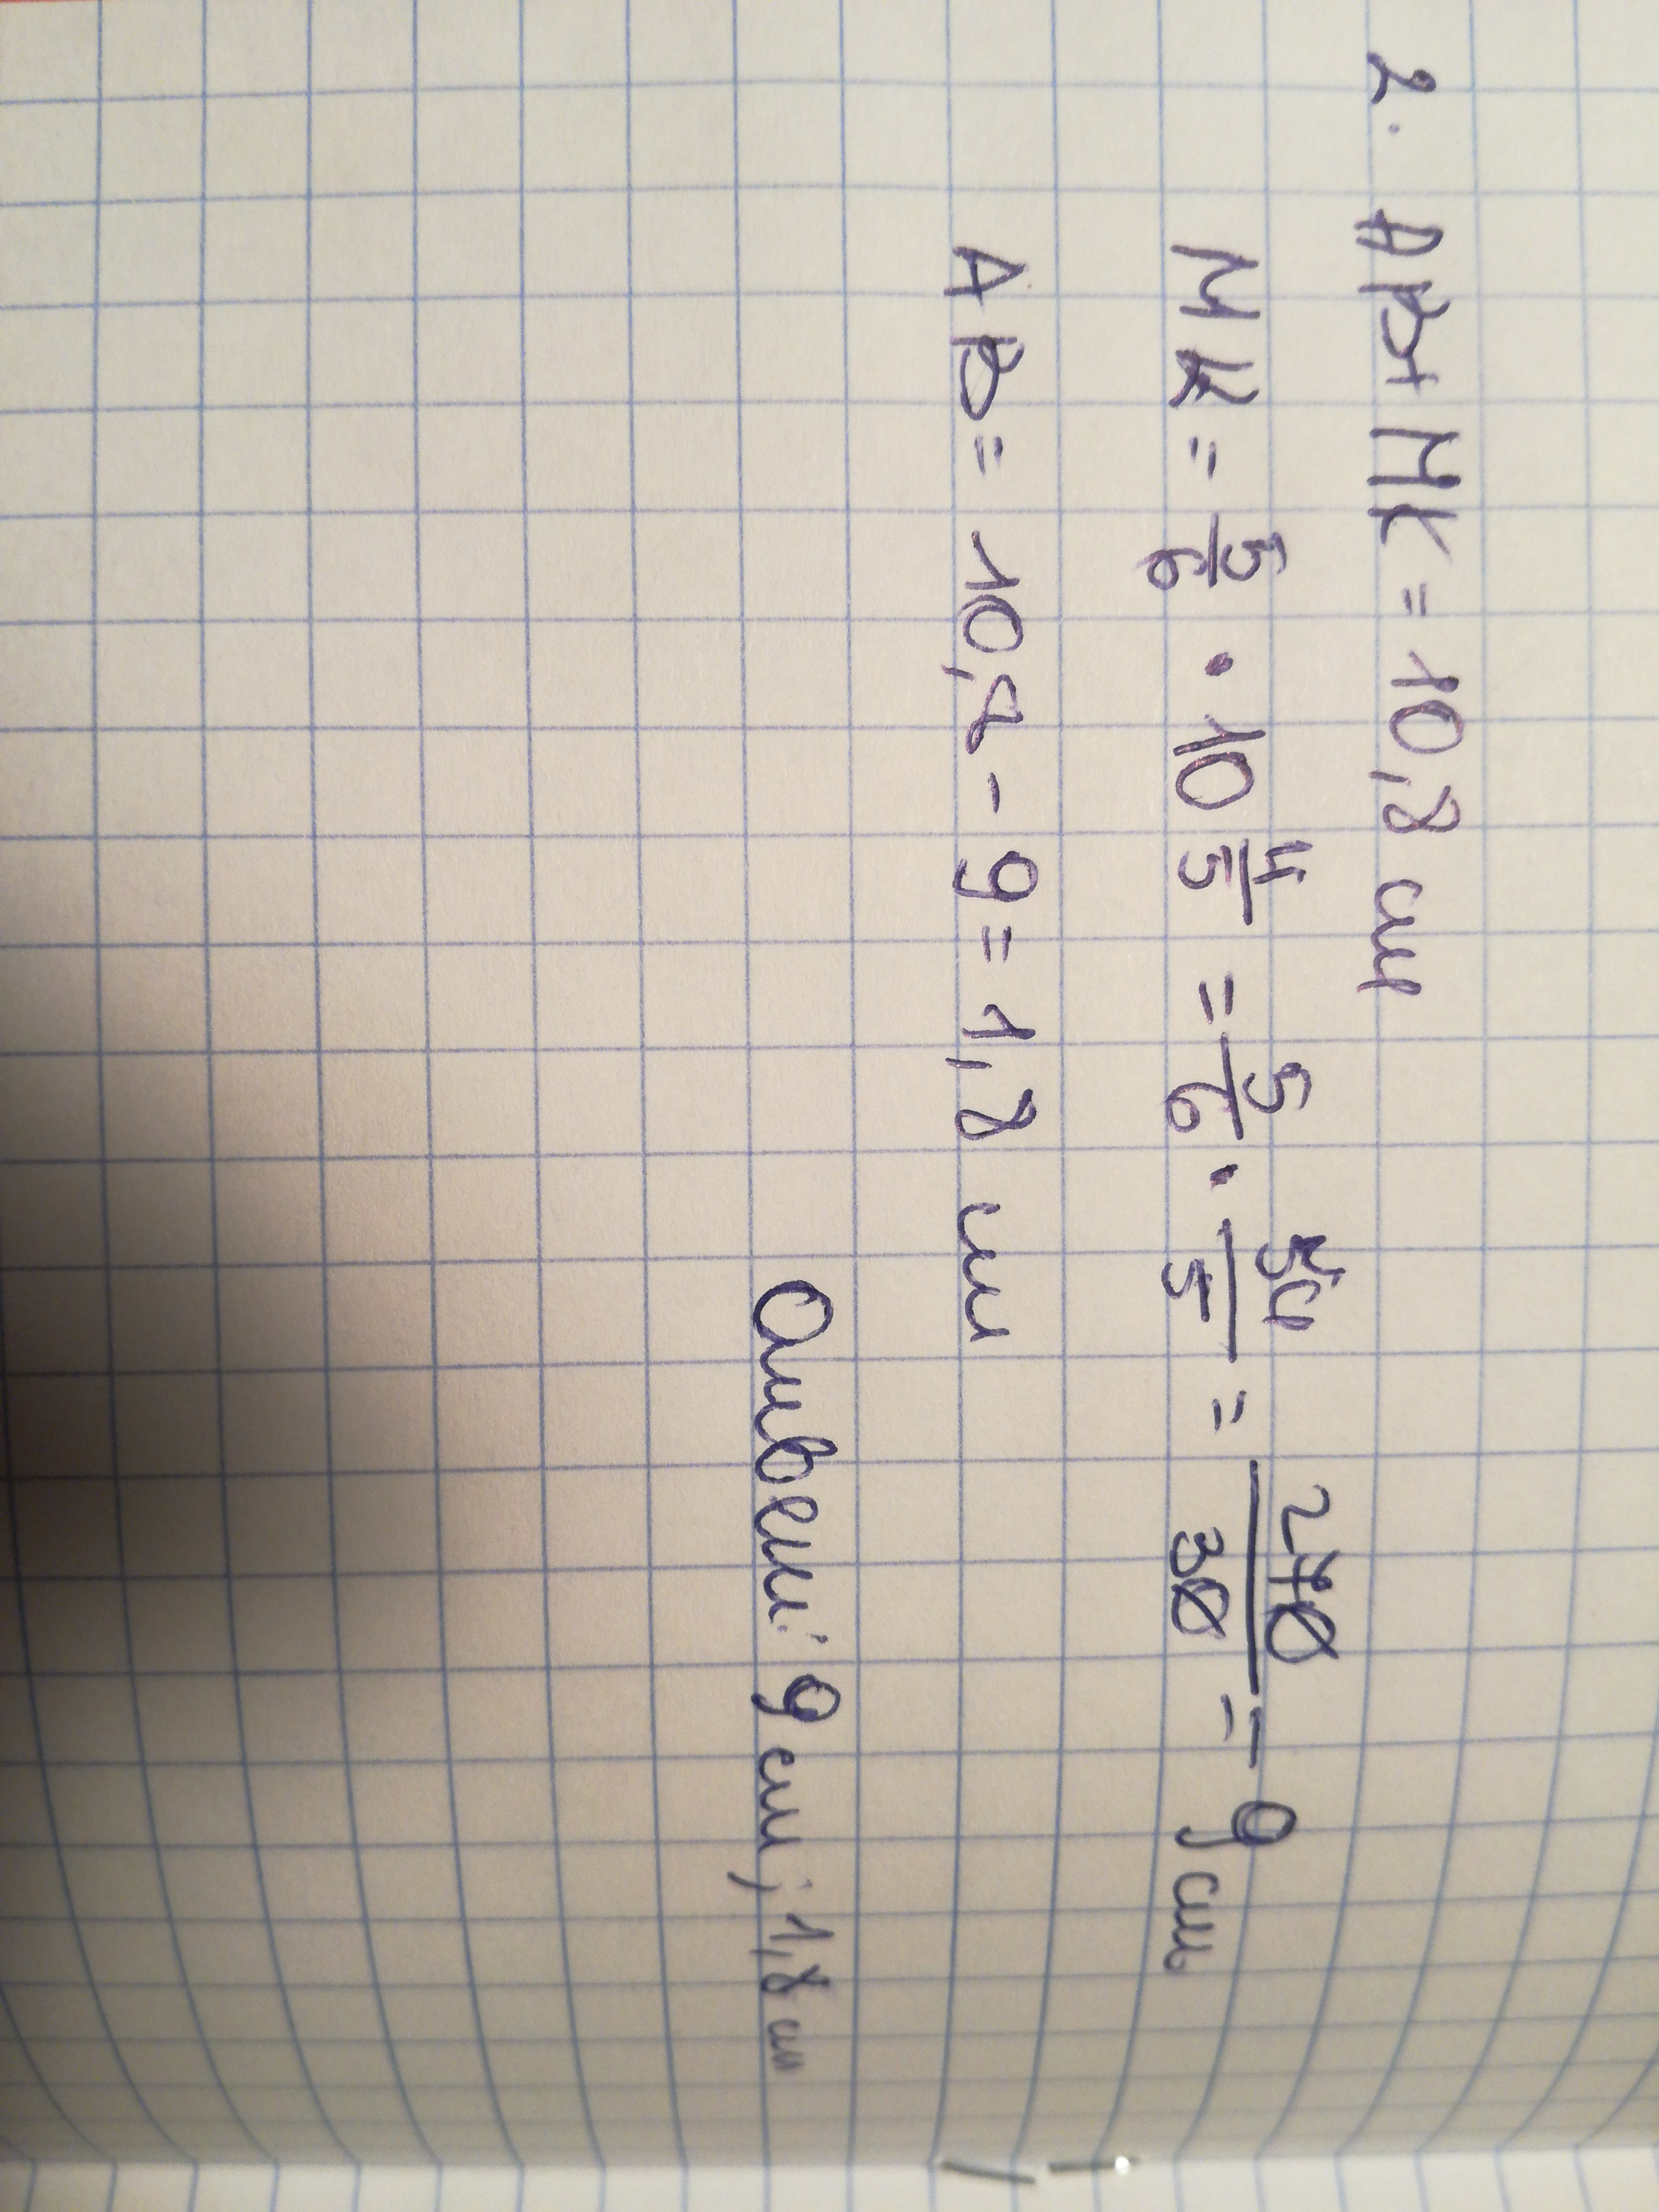 2. AB+MK = 10,8 см
MK = 5/6 · 10 4/5 = 5/6 · 54/5 = 270/30 = 9 см
AB = 10,8 - 9 = 1,8 см
Ответ: 9 см; 1,8 см